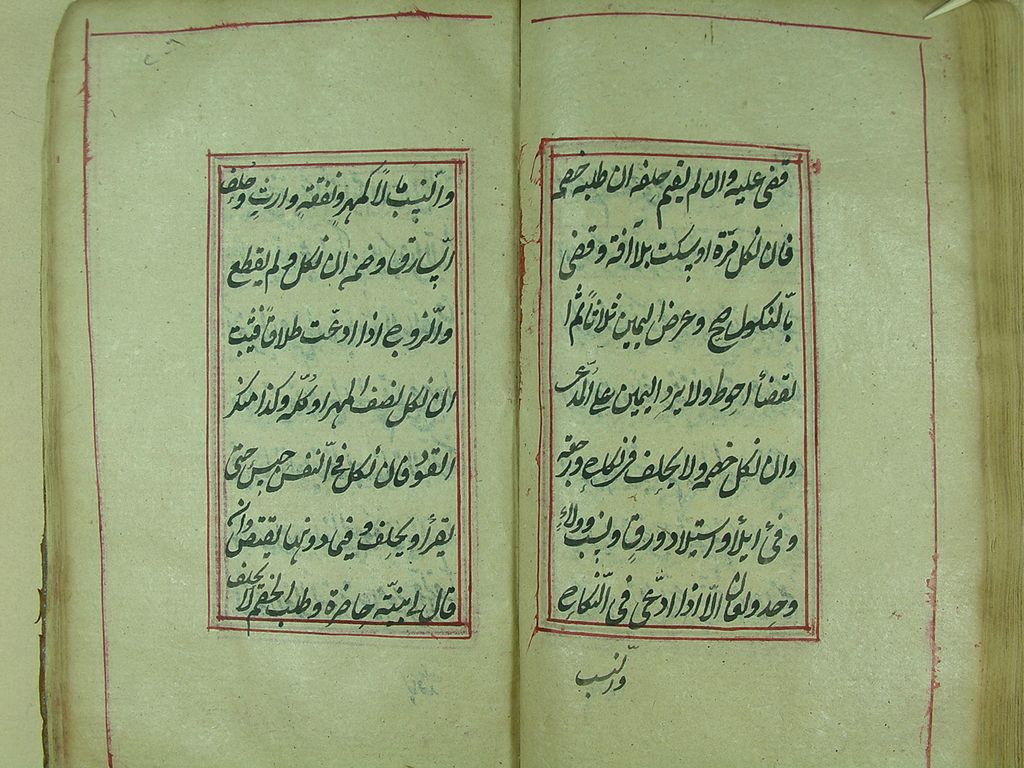 قضى عليه وان لم يقيم حلفه ان طلبه خصمه
فان نكل مرّة او سكت بلا آفة وقضى
بالنكول صح وعرض اليمين ثلاثاً ثم ا
لقضاء احوط ولا يرد اليمين على المدعى
وان نكل خصمه ولا يحلف في نكاح ورجعة
وفئ ايلاء واستيلاد ورق ونسب وولاء
وحد ولعان الّا اذا ادعى في النكاح
والنسب
والنسب مالاً كمهر ونفقة وارث وحلف
السارق وضمن ان نكل ولم يقطع
والزوج اذا ادعت طلاقاً فيثبت
ان نكل نصف المهر او كلّه وكذا منكر
القود فان نكل في النفس حبس حتى
يقرأ ويحلف وفيما دونها يقتص وان
قال لي بينة حاضرة وطلب الخصم لا يحلف